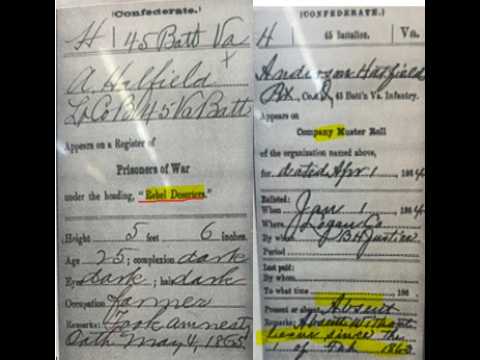 (Confederate.)
H | 45 Batt Va
A. Hatfield
Co B 45 Va Batt
Appears on a Register of
Prisoners of War
under the heading, "Rebel Deserters."
Height 5 feet 6 inches.
Age 25; complexion dark
Eyes dark; hair dark
Occupation Farmer
Remarks: Took amnesty
Oath May 4, 1865
(CONFEDERATE.)
H 45 Battalion. Va.
Anderson Hatfield
Co. 45 Batt'n Va. Infantry.
Appears on
Company Muster Roll
of the organization named above,
for dated Apr 1, 1864
Enlisted:
When Jan 1, 1864
Where Logan Co
By whom B H Justice
Period
Last paid:
By whom
To what time , 186
Present or absent Absent
Remarks: Absent Without
Leave since the
1 of Feb 1863